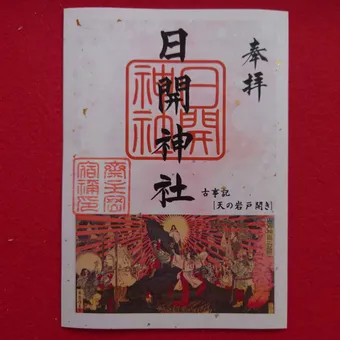 奉拝
日開神社
日開
神社
古事記
「天の岩戸開き」